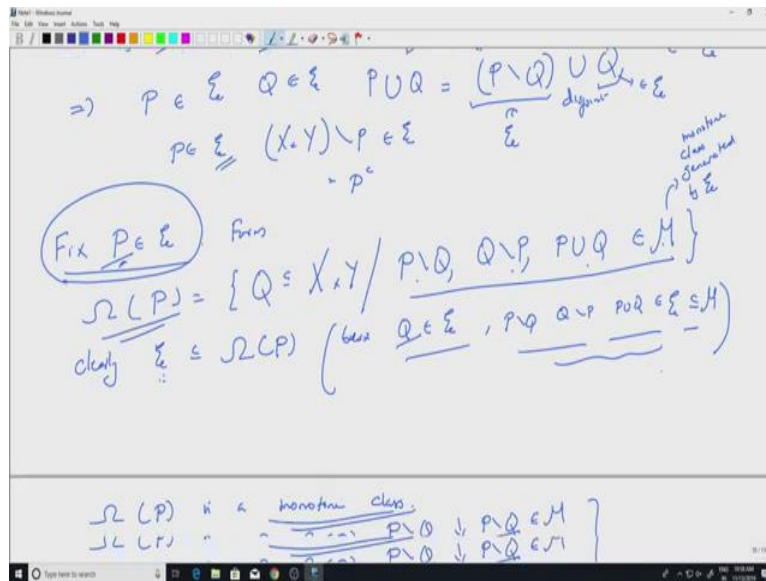 Note1 - Windows Journal
File Edit View Insert Actions Tools Help
⇒ P ∈ ξ Q ∈ ξ P ∪ Q = (P \ Q) ∪ Q → ∈ ξ
disjoint
ξ
P ∈ ξ, (X × Y) \ P ∈ ξ
= P^c
monotone
class
generated
by ξ
Fix P ∈ ξ. Form
Ω(P) = { Q ⊆ X × Y / P \ Q, Q \ P, P ∪ Q ∈ M }
clearly ξ ⊆ Ω(P) ( Q ∈ ξ, P \ Q Q \ P P ∪ Q ∈ ξ ⊆ M )
Ω(P) is a monotone class.
P \ Q ↓, P \ Q ∈ M
P \ Q ↓, P \ Q ∈ M
Type here to search